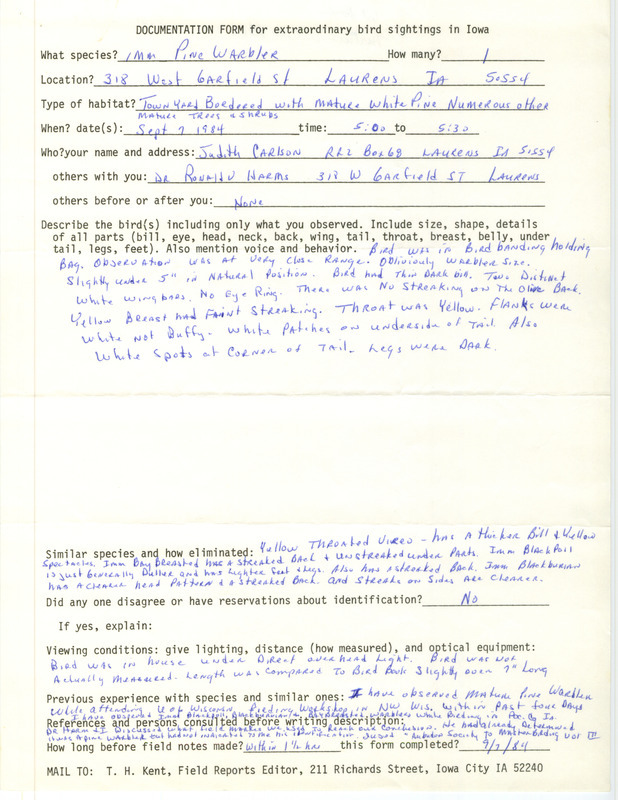 DOCUMENTATION FORM for extraordinary bird sightings in Iowa
What species? IMM PINE WARBLER How many? 1
Location? 318 West Garfield St LAURENS IA 50554
Type of habitat? Town Yard Bordered with mature White Pine Numerous other
mature trees & shrubs
When? date(s): Sept 7 1984 time: 5:00 to 5:30
Who?your name and address: Judith Carlson RR2 Box 68 LAURENS IA 51554
others with you: DR Ronald Harms 318 W Garfield ST Laurens
others before or after you: None
Describe the bird(s) including only what you observed. Include size, shape, details
of all parts (bill, eye, head, neck, back, wing, tail, throat, breast, belly, under
tail, legs, feet). Also mention voice and behavior. Bird was in Bird banding holding
Bag. Observation was at very close range. Obliviously warbler size.
Slightly under 5" in natural position. Bird had thin dark bill. Two Distinct
white wingbars. No Eye Ring. There was no streaking on the olive Back.
Yellow Breast had faint streaking. Throat was yellow. Flanks were
white not Buffy. White Patches on underside of Tail Also
white spots at corner of Tail. Legs were Dark.
Similar species and how eliminated: Yellow Throated Vireo - has a thicker Bill & Yellow
Spectacles. Imm Bay Breasted has a streaked Back & unstreaked under parts. Imm Blackpoll
is just generally Duller and has lighter feet & legs. Also has streaked Back. Imm Blackburian
has a clearer head pattern & a streaked Back. and streaks on sides are clearer.
Did any one disagree or have reservations about identification? No
If yes, explain:
Viewing conditions: give lighting, distance (how measured), and optical equipment:
Bird was in house under Direct overhead light. Bird was not
Actually measured. Length was compared to Bird Book slightly over 2" long
Previous experience with species and similar ones: I have observed mature Pine Warbler
while attending U of Wisconsin Birding Workshop in NW Wis. within past four Days
I have observed Imm Blackpoll, Blackburnian, & Baybreasted warblers while Birding in Poc. Co Ia.
References and persons consulted before writing description:
Dr Harms & I Discussed what field marks we used to reach our conclusion. He had already Determined
it was a Pine Warbler but had not indicated to me his identification. I used "Audubon Society to Master Birding Vol III
How long before field notes made? within 1½ hrs this form completed? 9/7/84
MAIL TO: T. H. Kent, Field Reports Editor, 211 Richards Street, Iowa City IA 52240